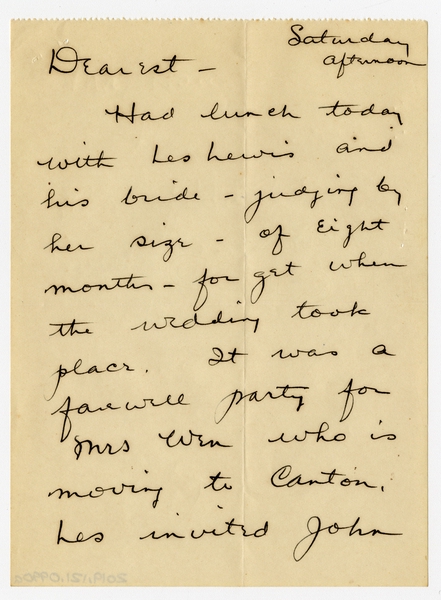 Saturday
afternoon
Dearest -
Had lunch today
with Les Lewis and
his bride - judging by
her size - of eight
months - for get when
the wedding took
place. It was a
farewell party for
Mrs Wen who is
moving to Canton.
Les invited John
2019.121.0990a